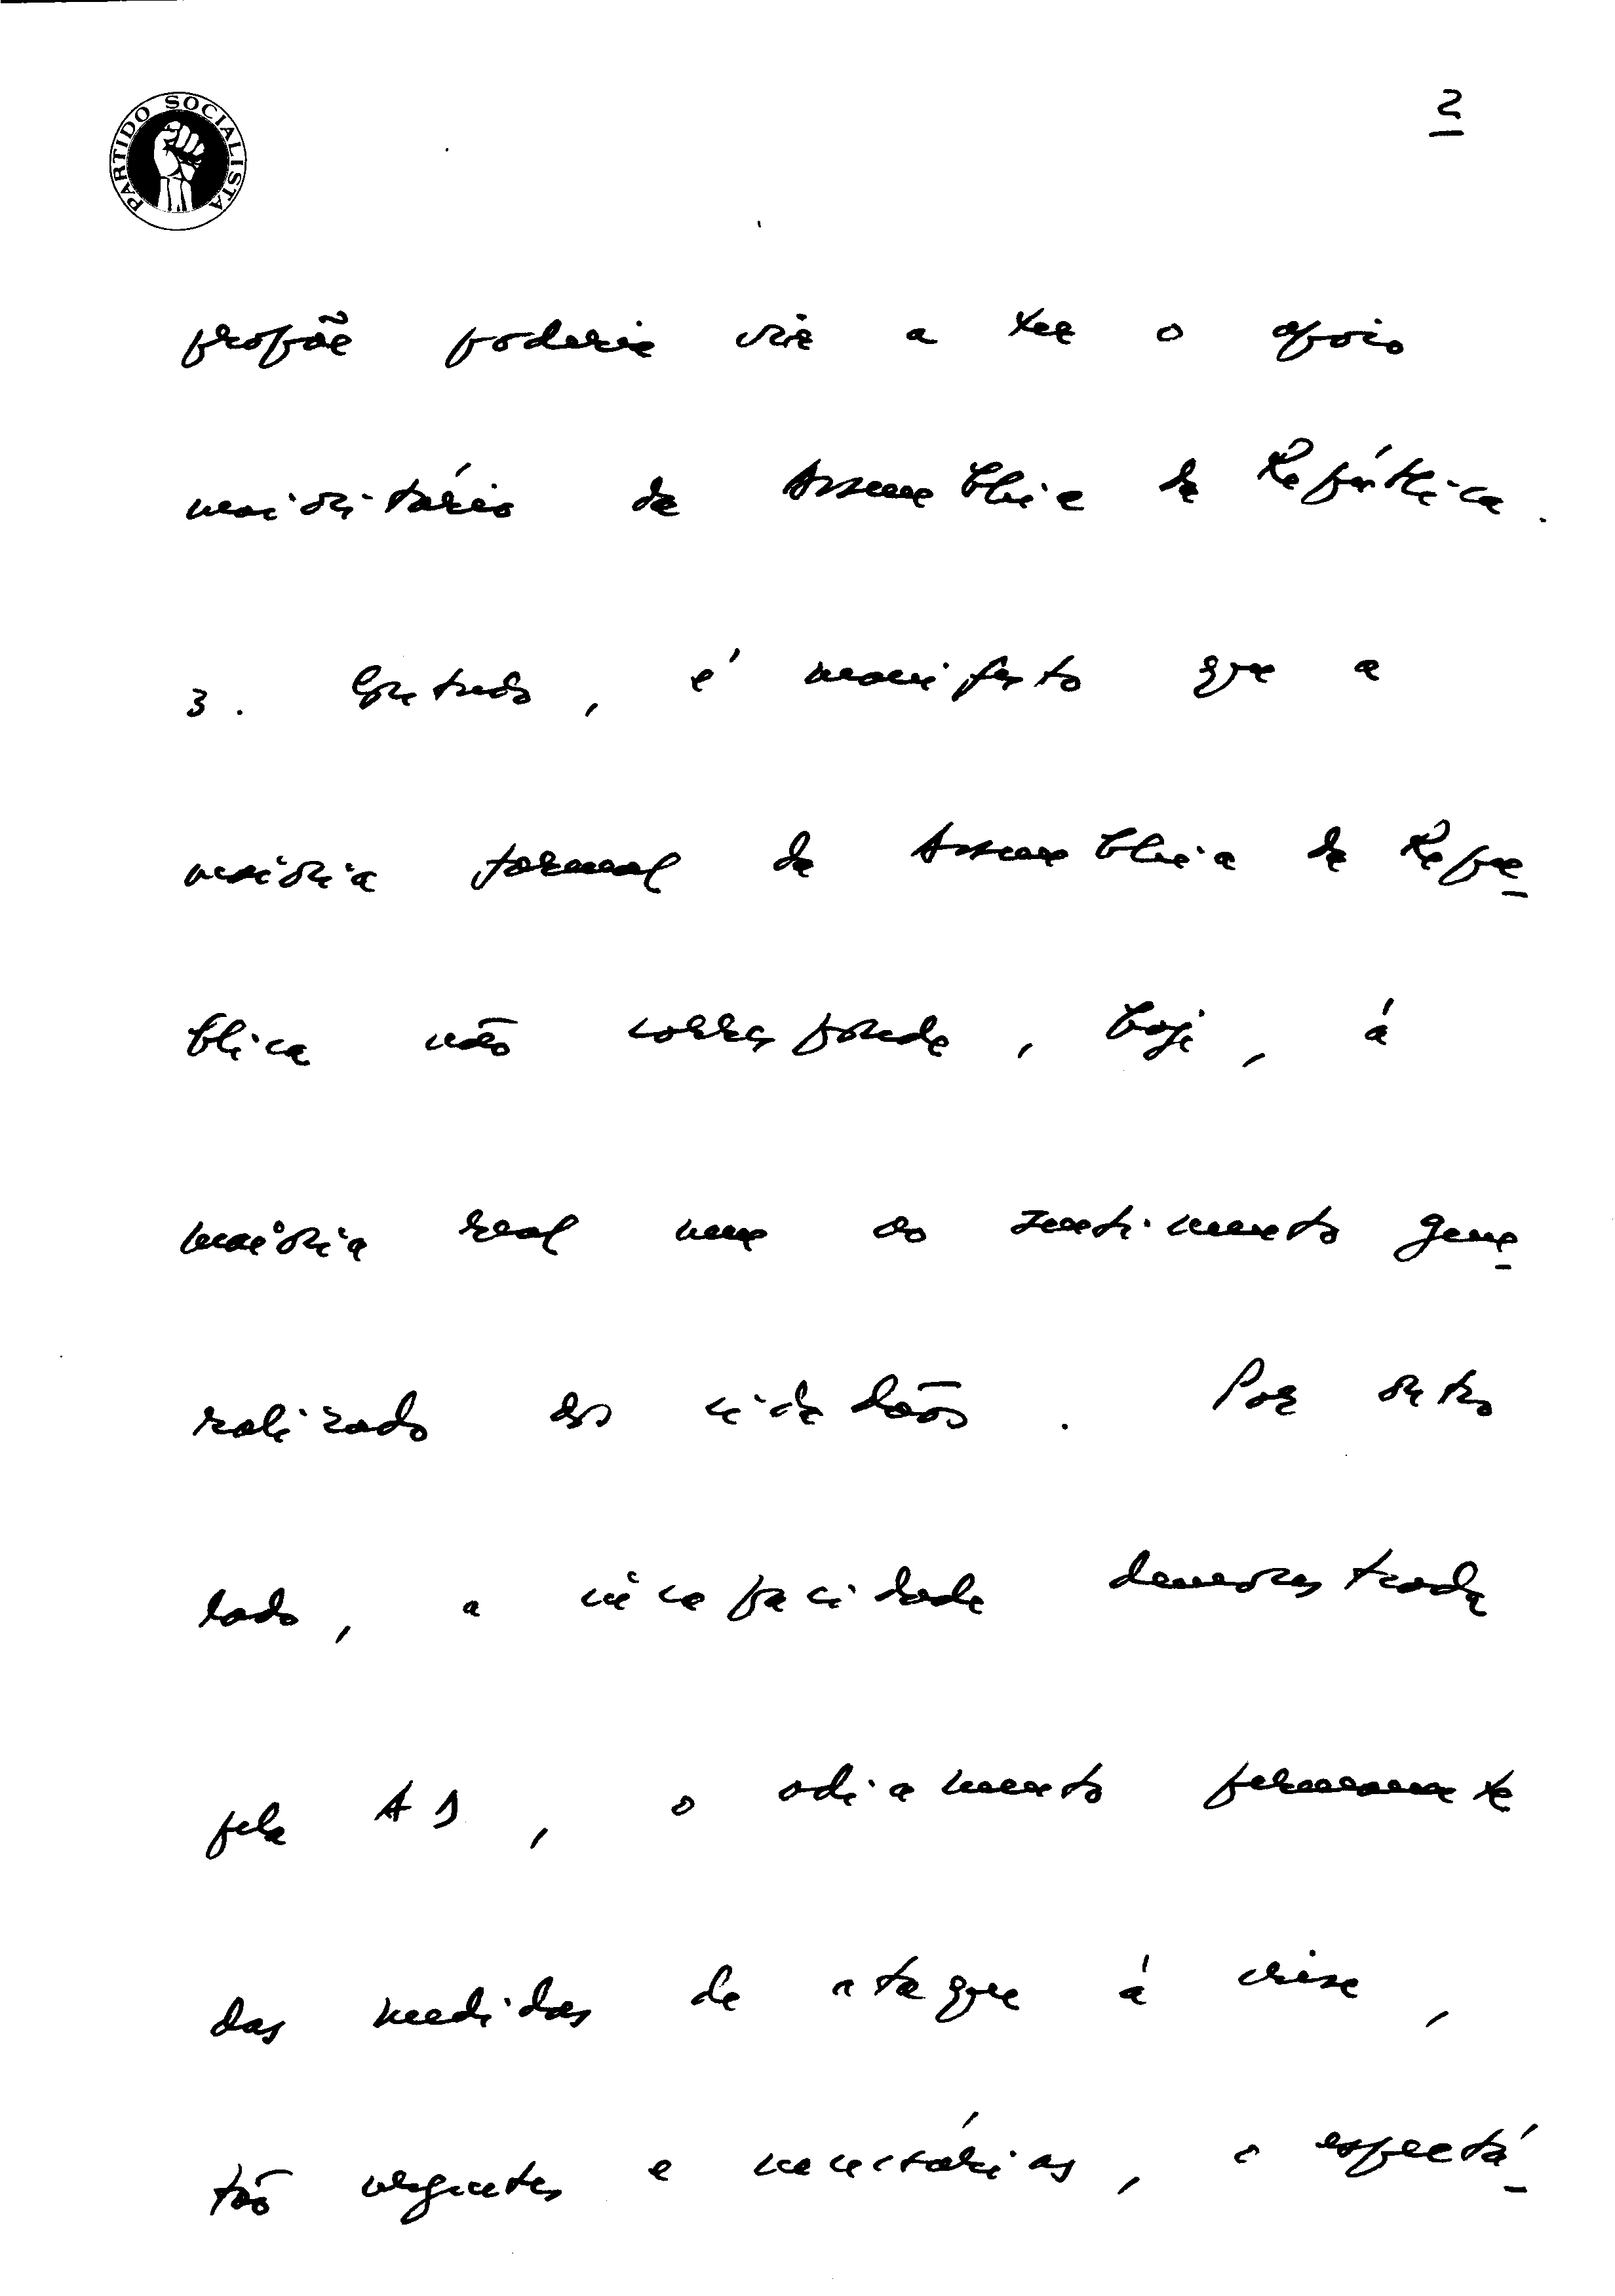 PARTIDO SOCIALISTA
2
propõe poderia vir a ter o apoio
maioritário da Assembleia da República.
3. Contudo, é manifesto que a
maioria formal da Assembleia da Repú-
blica não corresponde, hoje, à
maioria real nem ao sentimento gene-
ralizado dos cidadãos. Por outro
lado, a incapacidade demonstrada
pela AD, o adiamento permanente
das medidas de ataque à crise,
tão urgentes e necessárias, o espectá-